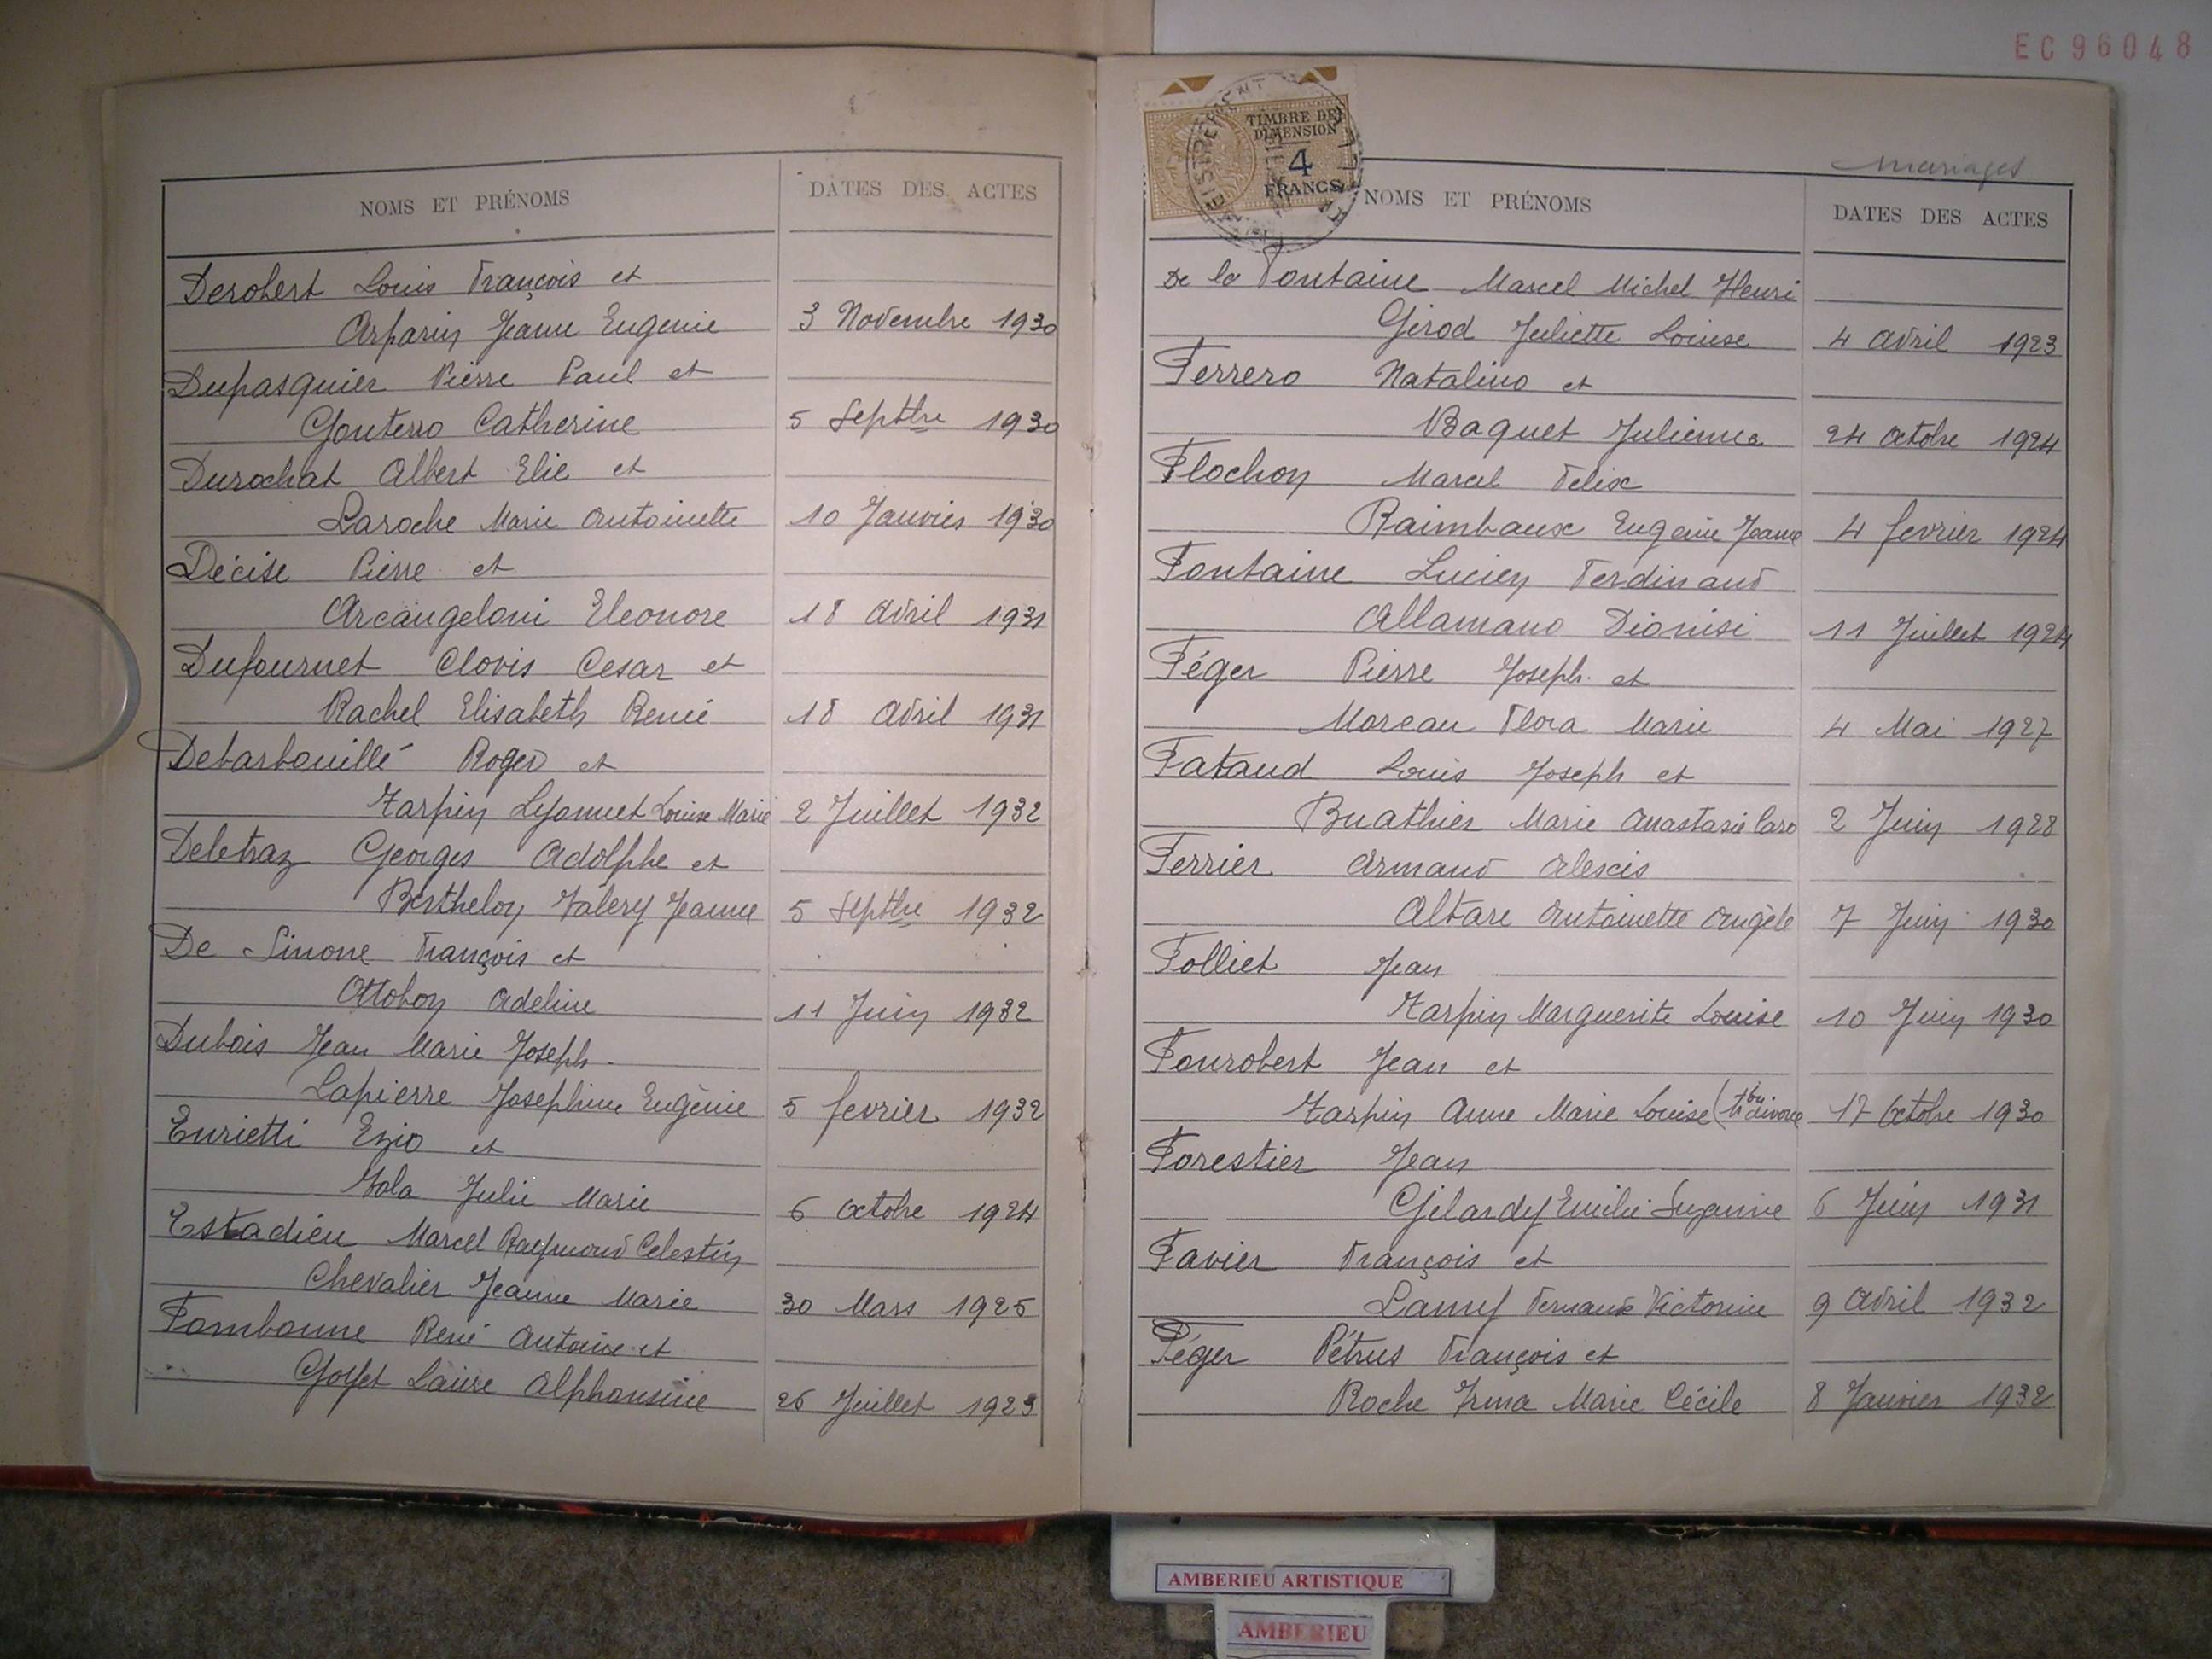 EC96048
NOMS ET PRÉNOMS
DATES DES ACTES
Derobert Louis François et
Arparin Jeanne Eugenie 3 Novembre 1930
Dupasquier Pierre Paul et
Gontero Catherine 5 Septbre 1930
Durochat Albert Elie et
Laroche Marie Antoinette 10 Janvier 1930
Décise Pierre et
Arcangeloni Eleonore 18 Avril 1931
Dufournet Clovis Cesar et
Rachel Elisabeth Renée 18 Avril 1931
Debarbouillé Roger et
Zarpin Lyonnet Louise Marie 2 Juillet 1932
Deletraz Georges Adolphe et
Berthelon Valery Jeanne 5 Septbre 1932
De Simone François et
Ottobon Adeline 11 Juin 1932
Dubois Jean Marie Joseph
Lapierre Josephine Eugènie 5 fevrier 1932
Enrietti Ezio et
Yola Julie Marie 6 Octobre 1924
Estadieu Marcel Raymond Celestin
Chevalier Jeanne Marie 30 Mars 1925
Fombonne René Antoine et
Goyet Laure Alphonsine 26 Juillet 1923
TIMBRE DE
DIMENSION
4
FRANCS
Mariages
NOMS ET PRÉNOMS
DATES DES ACTES
De la Fontaine Marcel Michel Henri
Girod Juliette Louise 4 Avril 1923
Ferrero Natalino et
Baquet Julienne 24 Octobre 1924
Flochon Marcel Felix
Raimbaux Eugenie Jeanne 4 fevrier 1924
Fontaine Lucien Ferdinand
Allamano Dionisi 11 Juillet 1924
Féger Pierre Joseph et
Moreau Flora Marie 4 Mai 1927
Fataud Louis Joseph et
Buathier Marie Anastasie Caro 2 Juin 1928
Ferrier Armand Alexis
Altare Antoinette Angèle 7 Juin 1930
Folliet Jean
Zarpin Marguerite Louise 10 Juin 1930
Fourobert Jean et
Zarpin Anne Marie Louise 17 Octobre 1930
Forestier Jean
Gilardy Emilie Suzanne 6 Juin 1931
Favier François et
Lamy Fernande Victorine 9 Avril 1932
Féger Pétrus François et
Roche Irma Marie Cécile 8 Janvier 1932
AMBERIEU ARTISTIQUE
AMBERIEU